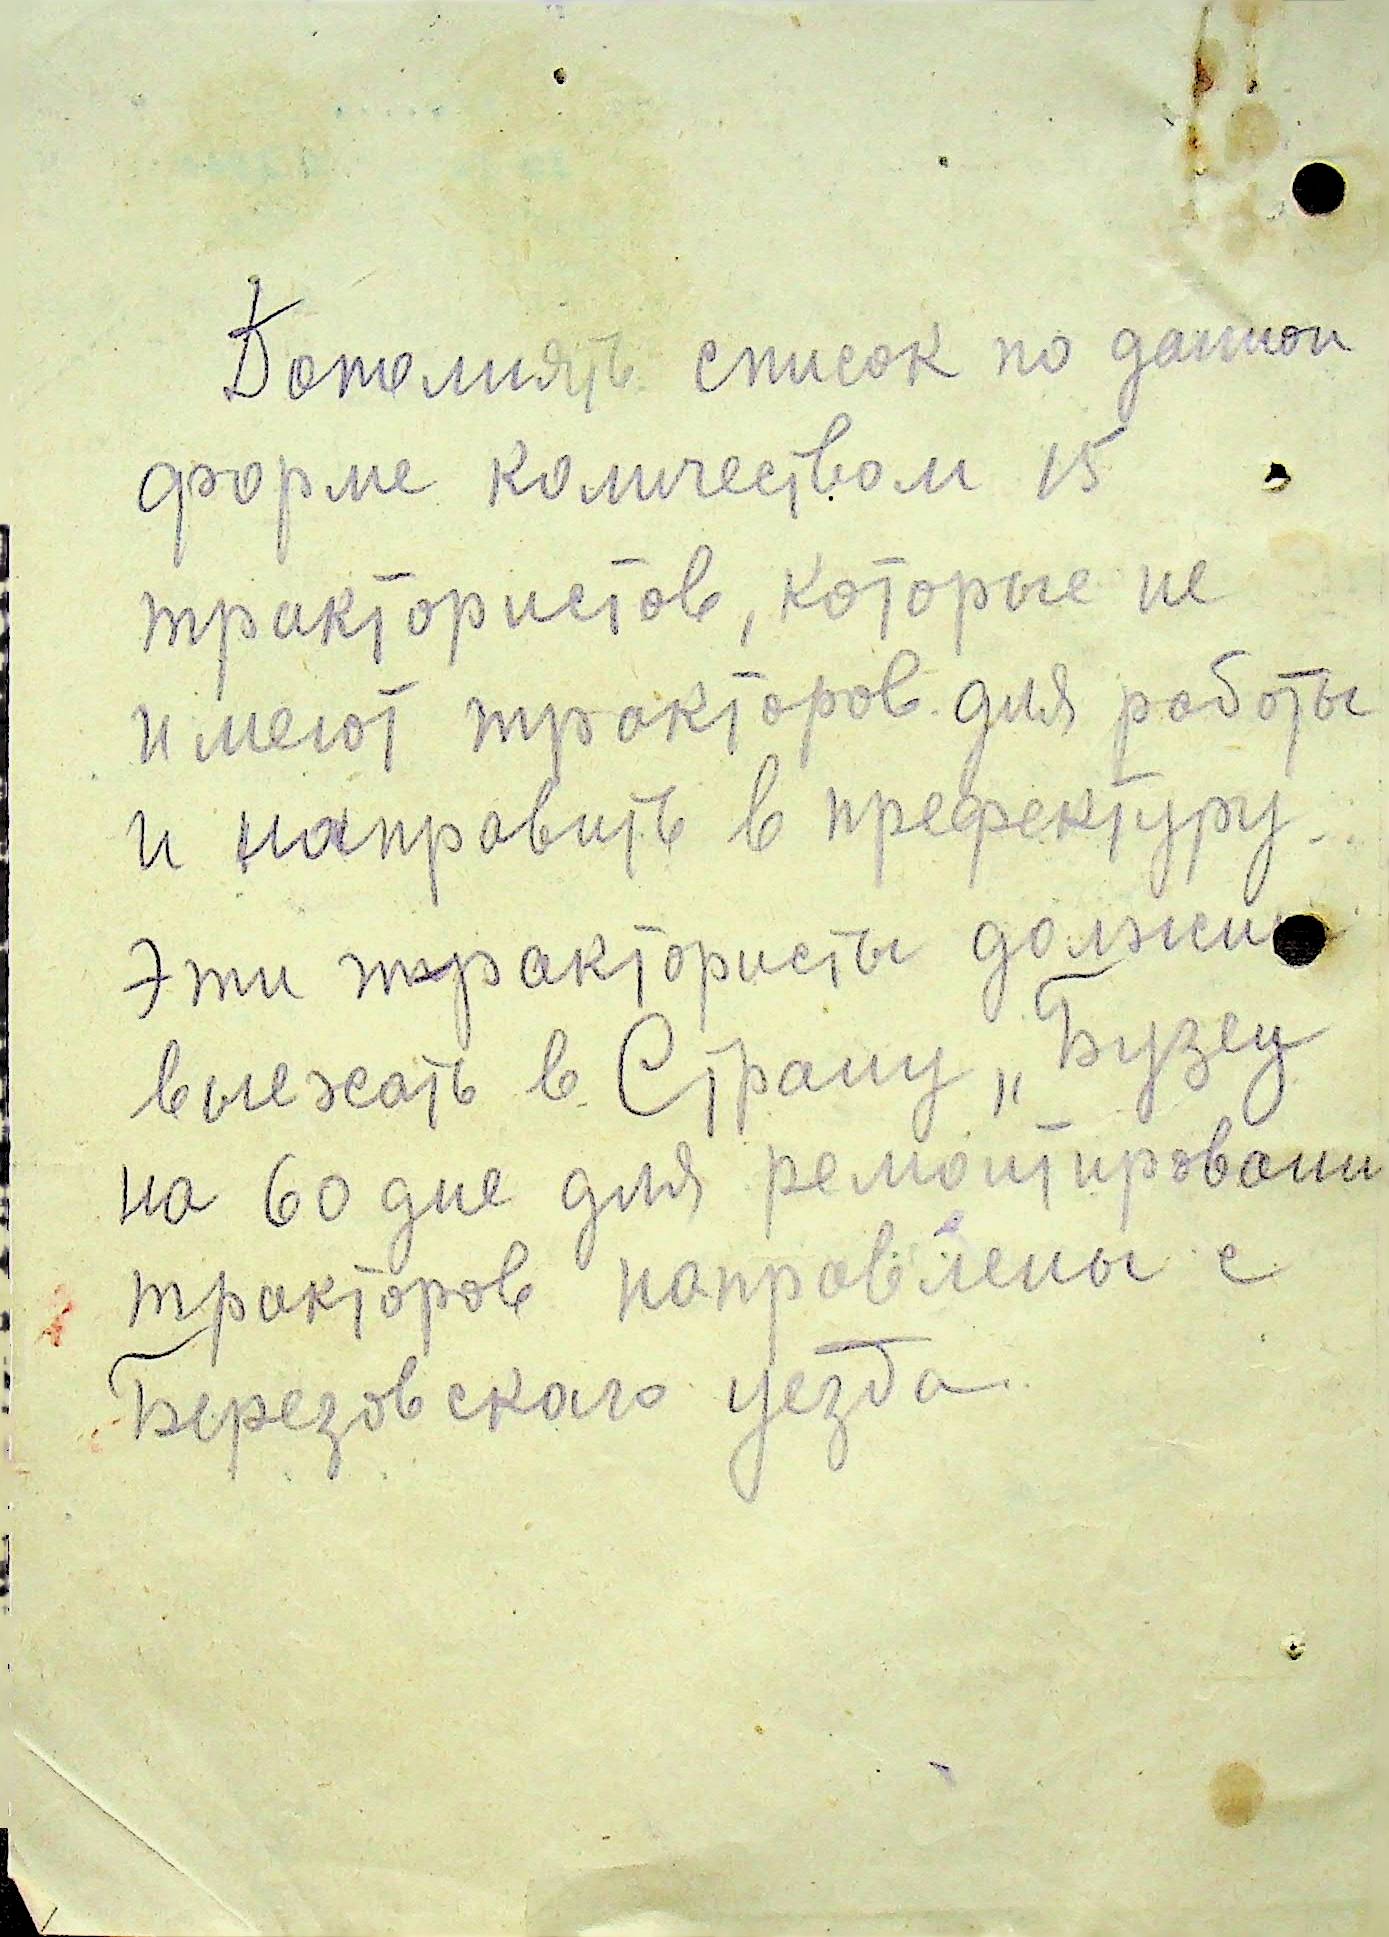 Дополнять список по данной
форме количеством 15
трактористов, которые не
имеют тракторов для работы
и направить в префектуру.
Эти трактористы должны
выежать в Страну „Бузец
на 60 дне для ремонтировани
тракторов направлены с
Березовского уезда.